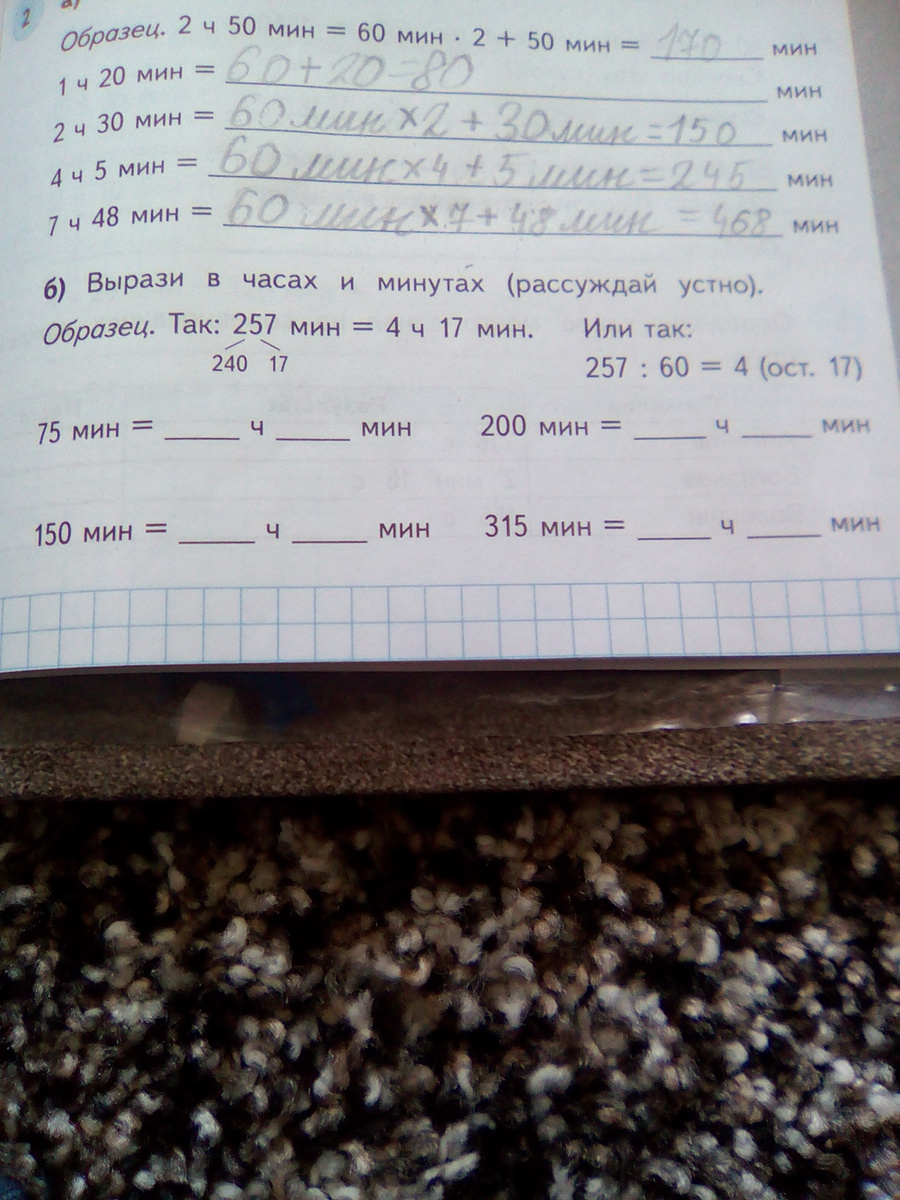 2
Образец. 2 ч 50 мин = 60 мин · 2 + 50 мин = 170 мин
1 ч 20 мин = 60+20=80 мин
2 ч 30 мин = 60 мин x2 + 30 мин = 150 мин
4 ч 5 мин = 60 мин x4 + 5 мин = 245 мин
7 ч 48 мин = 60 мин x7 + 48 мин = 468 мин
б) Вырази в часах и минутах (рассуждай устно).
Образец. Так: 257 мин = 4 ч 17 мин. Или так:
240 17 257 : 60 = 4 (ост. 17)
75 мин = ____ ч ____ мин 200 мин = ____ ч ____ мин
150 мин = ____ ч ____ мин 315 мин = ____ ч ____ мин